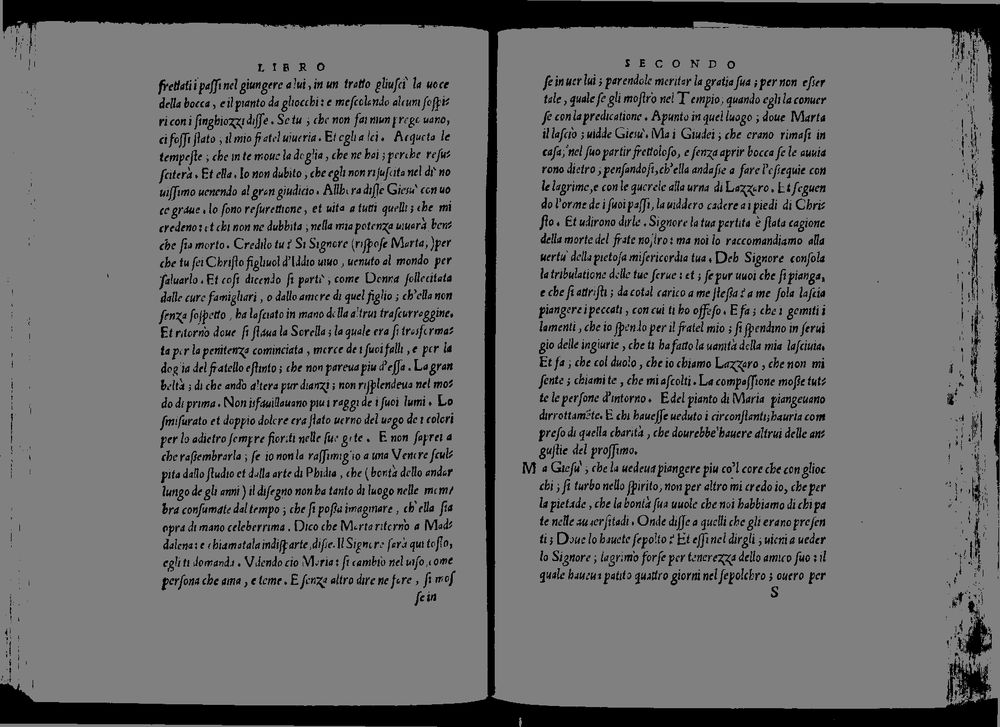 LIBRO
frettati i passi nel giungere a lui, in un tratto gliuscì la uoce
della bocca, e il pianto da gliocchi: e mescolando alcuni sospi⸗
ri con i singhiozzi disse. Se tu, che non fai niun prego uano,
ci fossi stato, il mio fratel uiueria. Et egli a lei. Acqueta le
tempeste, che in te moue la doglia, che ne hai; perche resu⸗
sciterà. Et ella. Io non dubito, che egli non risusciti nel dì no
uissimo uenendo al gran giudicio. Allhora disse Giesù con uo
ce graue. Io sono resurettione, et uita a tutti quelli; che mi
credeno: et chi non ne dubbita, nella mia potenza uiuerà ben⸗
che sia morto. Credilo tu? Si Signore (rispose Marta,) per
che tu sei Christo figliuol d'Iddio uiuo, uenuto al mondo per
saluarlo. Et così dicendo si partì, come Donna sollecitata
dalle cure famigliari, o dallo amore di quel figlio; ch'ella non
senza sospetto, ha lasciato in mano della altrui trascuraggine.
Et ritornò doue si staua la Sorella; la quale era sì trasforma⸗
ta per la penitenza cominciata, mercè de i suoi falli, e per la
doglia del fratello estinto; che non pareua piu d'essa. La gran
beltà; di che andò altera pur dianzi; non risplendeua nel mo⸗
do di prima. Non isfauillauano piu i raggi de i suoi lumi. Lo
smisurato et doppio dolore era stato uerno del uago de i colori
per lo adietro sempre fioriti nelle sue gote. E non saprei a
che rasembrarla; se io non la rassimiglio a una Venere scul⸗
pita dallo studio et dalla arte di Phidia, che (bontà dello andar
lungo de gli anni) il disegno non ha tanto di luogo nelle mem/
bra consumate dal tempo; che si possa imaginare, ch'ella sia
opra di mano celeberrima. Dico che Marta ritornò a Mad⸗
dalena: e chiamatala indisparte, disse. Il Signore sarà qui tosto,
egli ti domanda. Vdendo ciò Maria: si cambiò nel uiso, come
persona che ama, e teme. E senza altro dire ne fare, si mos
se in
SECONDO
se in uer lui; parendole meritar la gratia sua; per non esser
tale, quale se gli mostrò nel Tempio, quando egli la conuer
se con la predicatione. Apunto in quel luogo; doue Marta
il lasciò; uidde Giesù. Ma i Giudei; che erano rimasi in
casa, nel suo partir frettoloso, e senza aprir bocca se le auuia
rono dietro, pensandosi, ch'ella andasse a fare l'essequie con
le lagrime, e con le querele alla urna di Lazzaro. Et seguen
do l'orme de i suoi passi, la uiddero cadere a i piedi di Chri⸗
sto. Et udirono dirle. Signore la tua pertita è stata cagione
della morte del frate nostro: ma noi lo raccomandiamo alla
uertù della pietosa misericordia tua. Deh Signore consola
la tribulatione delle tue serue: et; se pur uuoi che si pianga,
e che si attristi; da cotal carico a me stessa: a me sola lascia
piangere i peccati, con cui ti ho offeso. E fa; che i gemiti i
lamenti, che io spendo per il fratel mio; si spendino in serui
gio delle ingiurie, che ti ha fatto la uanità della mia lasciuia.
Et fa; che col duolo, che io chiamo Lazzaro, che non mi
sente; chiami te, che mi ascolti. La compassione mosse tut⸗
te le persone d'intorno. E del pianto di Maria piangeuano
dirrottamẽte. E chi hauesse ueduto i circonstanti; hauria com
preso di quella charità, che dourebbe hauere altrui delle an⸗
gustie del prossimo.
Ma Giesù; che la uedeua piangere piu co'l core che con glioc
chi; si turbò nello spirito, non per altro mi credo io, che per
la pietade, che la bontà sua uuole che noi habbiamo di chi pa
te nelle auersitadi. Onde disse a quelli che gli erano presen
ti; Doue lo hauete sepolto? Et essi nel dirgli; uieni a ueder
lo Signore; lagrimò forse per tenerezza dello amico suo: il
quale haueua patito quattro giorni nel sepolchro; ouero per
S